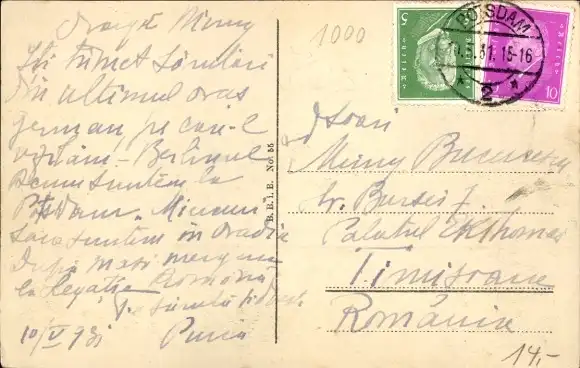 Dragă Mimy
Îți trimet sărutări
din ultimul oraș
german pe care-l
vizităm. Berlinul
Acum suntem la
Potsdam. Miercuri
seara suntem în Oradia
mergem
la Legația Română
Te sărută
10/V 931
1000
POTSDAM
10.5.31. 15-16
2
5
10
B. R. I. B. No. 55
Mimy
str. Bursei 7
Palatul
Timișoara
România
14.-